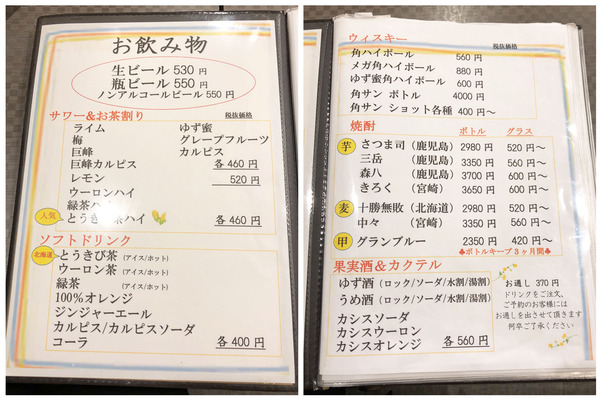 お飲み物
生ビール 530 円
瓶ビール 550 円
ノンアルコールビール 550 円
サワー&お茶割り 税抜価格
ライム ゆず蜜
梅 グレープフルーツ
巨峰 カルピス
巨峰カルピス 各 460 円
レモン 520 円
ウーロンハイ
緑茶ハイ
人気 とうきび茶ハイ 各 460 円
ソフトドリンク
北海道 とうきび茶 (アイス/ホット)
ウーロン茶 (アイス/ホット)
緑茶 (アイス/ホット)
100%オレンジ
ジンジャーエール
カルピス/カルピスソーダ
コーラ 各 400 円
ウィスキー 税抜価格
角ハイボール 560 円
メガ角ハイボール 880 円
ゆず蜜角ハイボール 600 円
角サン ボトル 4000 円
角サン ショット各種 400 円~
焼酎 ボトル グラス
芋 さつま司 (鹿児島) 2980 円 520 円~
三岳 (鹿児島) 3350 円 560 円~
森八 (鹿児島) 3700 円 600 円~
きろく (宮崎) 3650 円 600 円~
麦 十勝無敗 (北海道) 2980 円 520 円~
中々 (宮崎) 3350 円 560 円~
甲 グランブルー 2350 円 420 円~
♣ボトルキープ3ヶ月間♣
果実酒&カクテル
ゆず酒 (ロック/ソーダ/水割/湯割)
うめ酒 (ロック/ソーダ/水割/湯割)
カシスソーダ
カシスウーロン
カシスオレンジ 各 560 円
お通し 370 円
ドリンクをご注文、
ご予約のお客様には
お通しを出させて頂きます
何卒ご了承ください